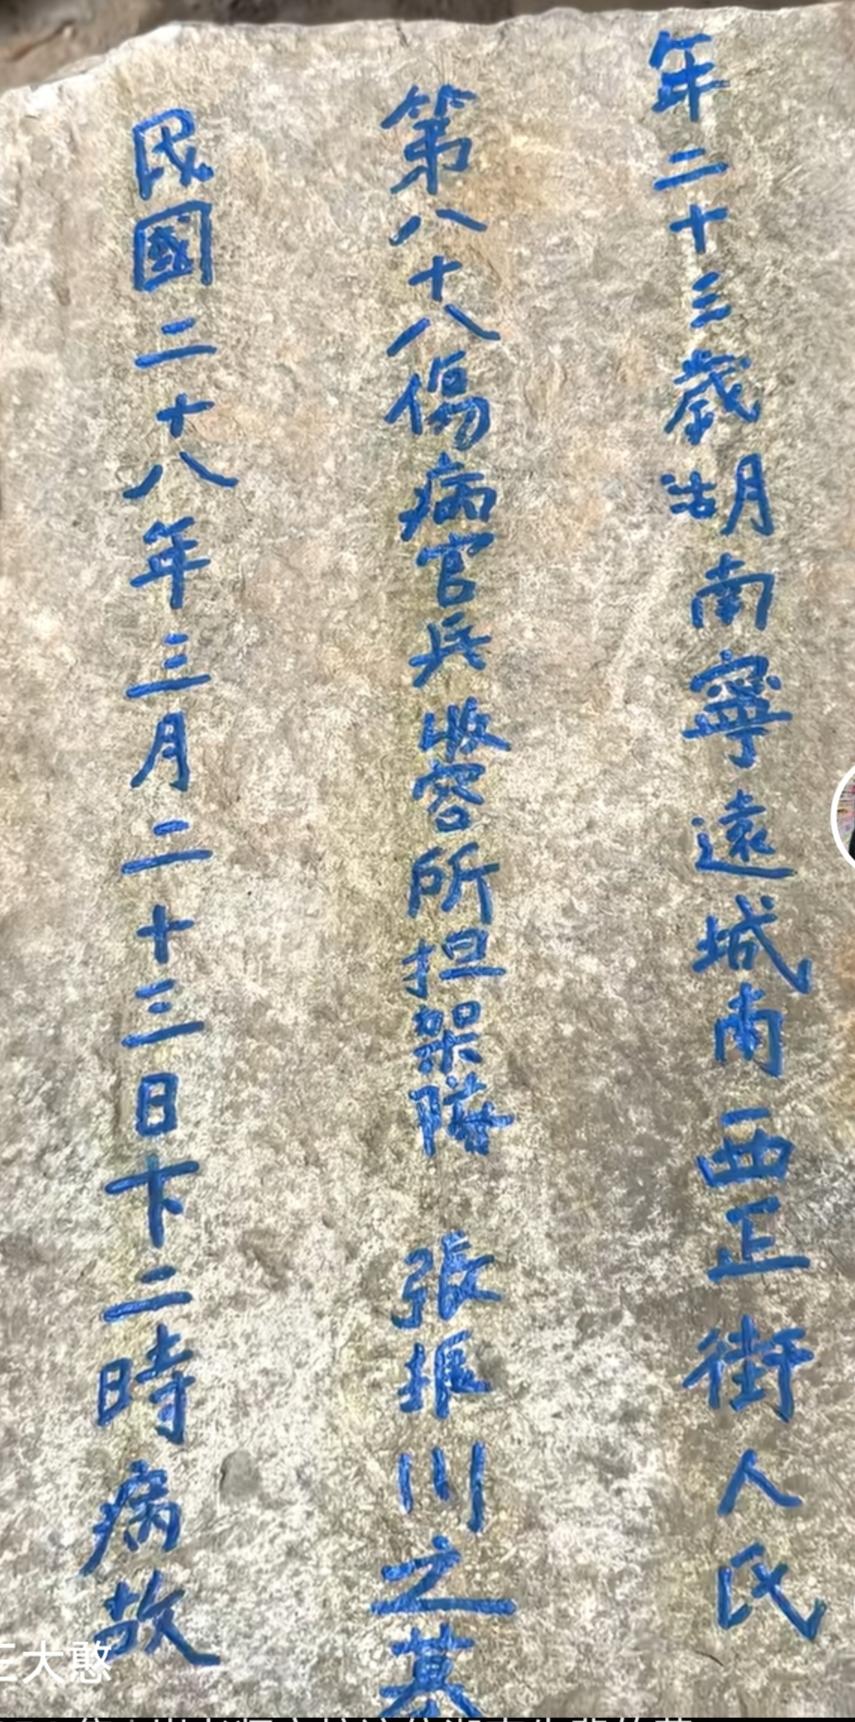 年二十三歲湖南寧遠城南西正街人氏
第八十八傷病官兵收容所担架隊 張振川之墓
民國二十八年三月二十三日下二時病故
三大憨